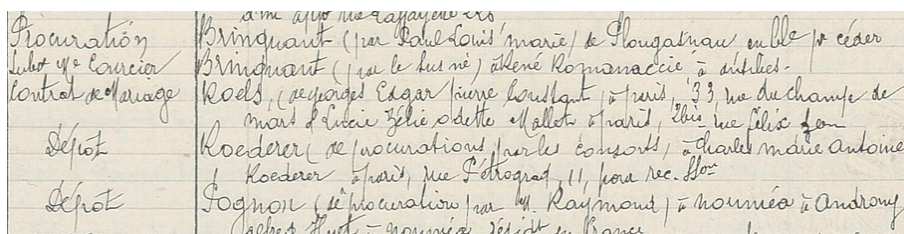 à Me appo rue Lafayette
Procuration Brinquant (par Paul Louis marie) de Plougasnau en ble pr céder
Subst Me Courcier Brinquant (par le sus né) à René Romanaccie à antibes.
Contrat de Mariage Roels, (de georges Edgar pierre Constant, à paris, 33, rue du champ de
mars & Lucie Zélie Odette Mallet à paris, 2bis rue félix
Dépôt Koederer (de procurations, par les consorts, à Charles marie Antoine
Koederer à paris, rue Pétrograd, 11, pour rec. ssion
Dépôt Pognon (de procuration par M. Raymond) à nouméa à Androny
alfred à nouméa résidt en France